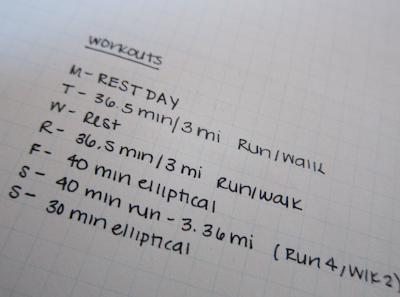 workouts
M - REST DAY
T - 36.5 min/3 mi Run/walk
W - Rest
R - 36.5 min/3 mi Run/walk
F - 40 min elliptical
S - 40 min run - 3.36 mi (Run 4, Wlk 2)
S - 30 min elliptical